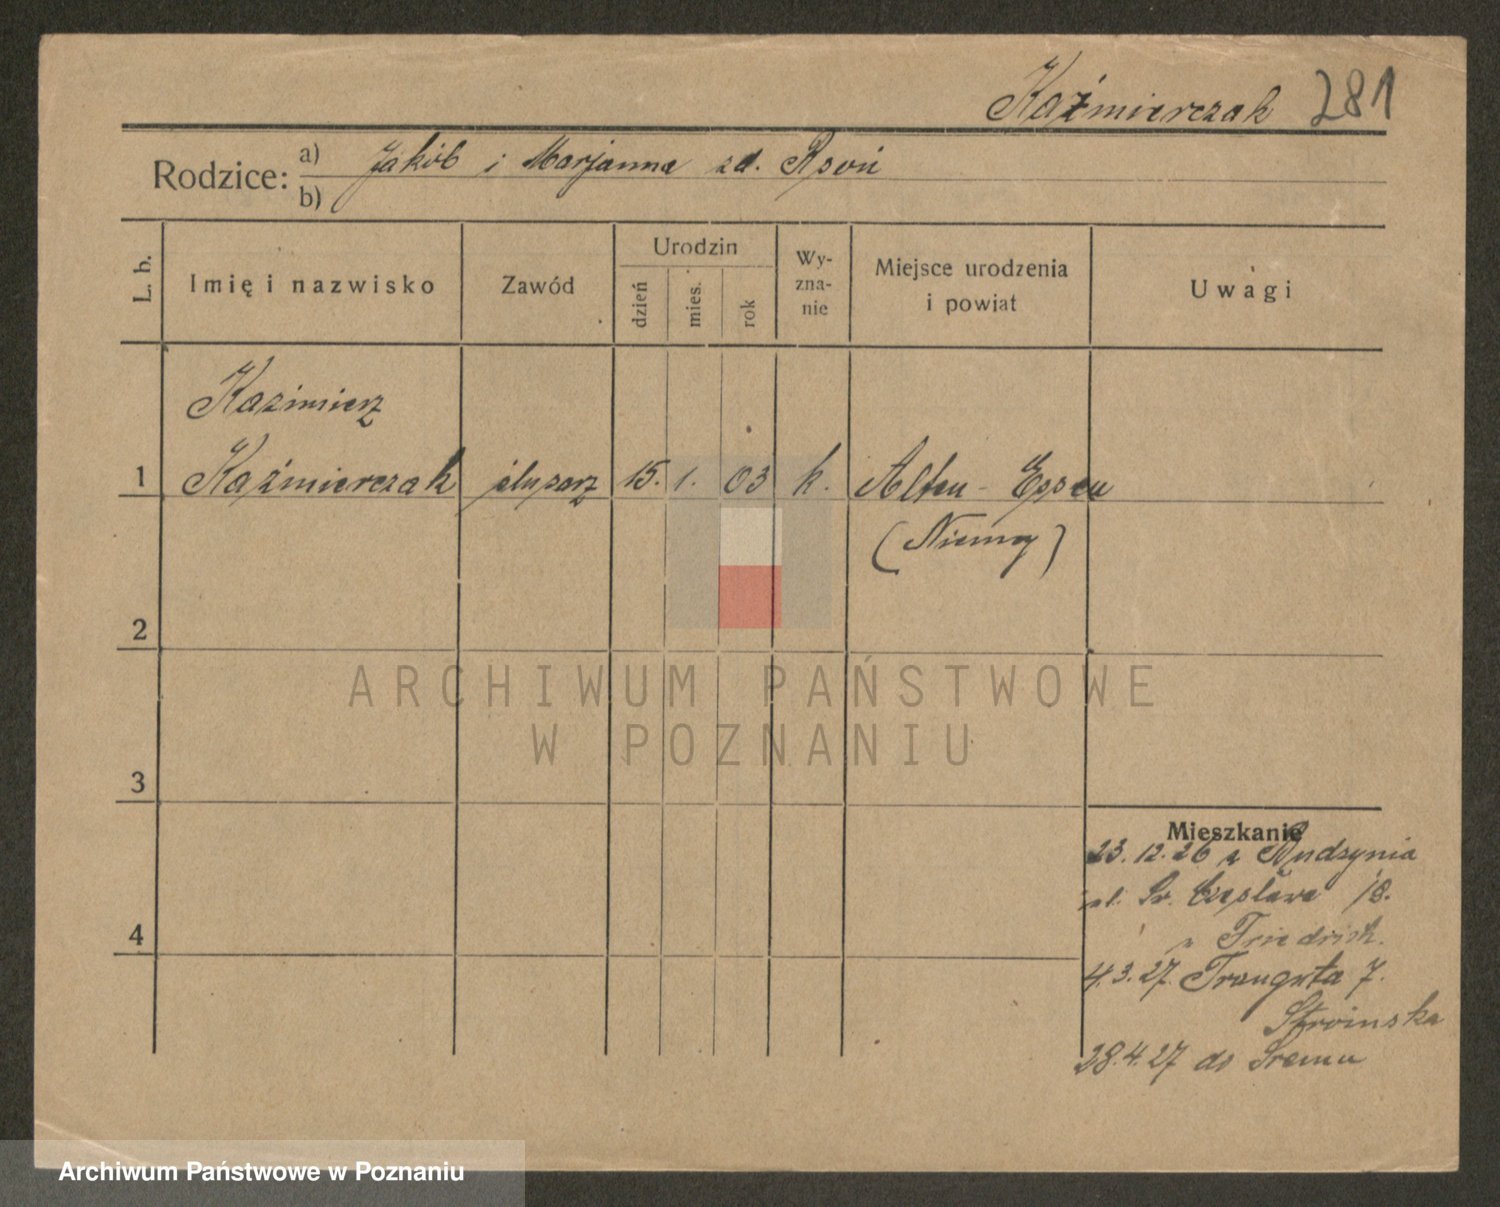 Kaźmierczak 281
Rodzice: a) Jakób i Marjanna zd.
b)
L. b. Imię i nazwisko Zawód Urodzin dzień mies. rok Wy-zna-nie Miejsce urodzenia i powiat Uwagi
Kazimierz
1 Kaźmierczak ślusarz 15. 1. 03 k. Alten-Essen
(Niemcy)
2
ARCHIWUM PAŃSTWOWE
W POZNANIU
3
Mieszkanie
23.12.26 z
ul. Św. Czesława 18.
4 u Friedrich.
4.3.27. Traugutta 7.
Stroinska
28.4.27 do Śremu
Archiwum Państwowe w Poznaniu